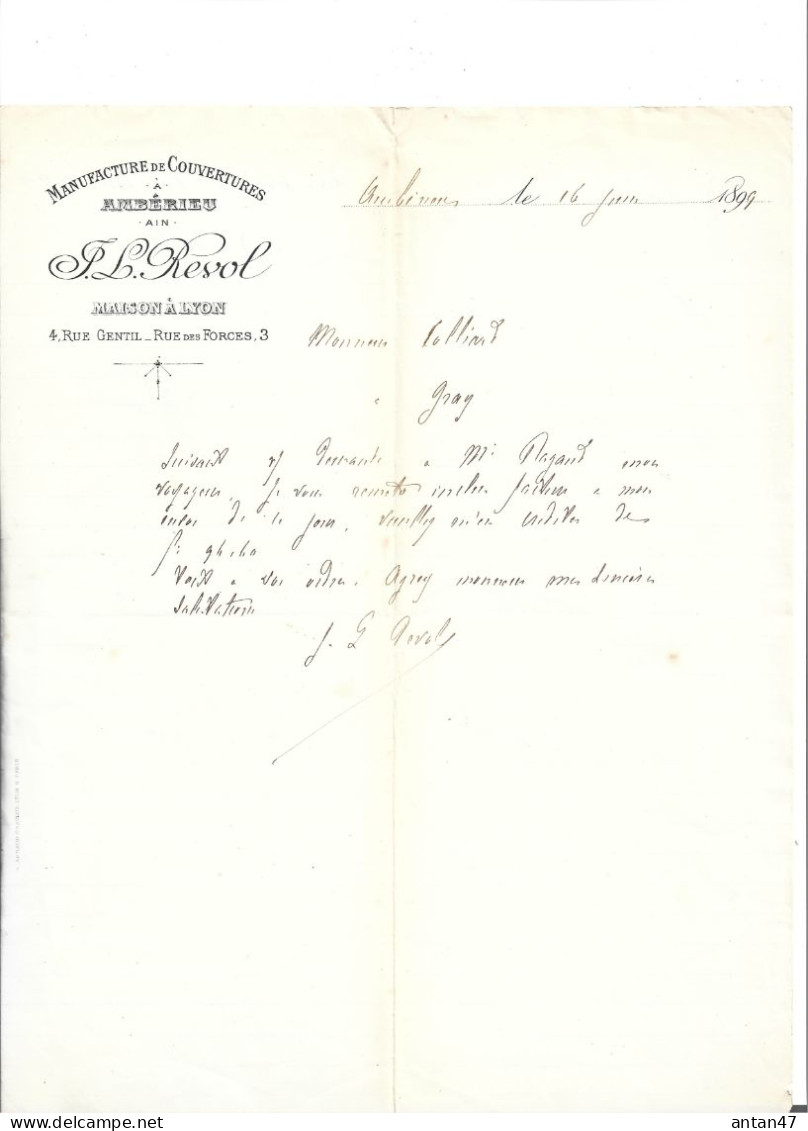 MANUFACTURE DE COUVERTURES
À
AMBÉRIEU
AIN
J. L. Revol
MAISON À LYON
4, RUE GENTIL _ RUE DES FORCES, 3
le 16 juin 1899
Monsieur Colliard
à Gray
Suivant v/ demande à Mr Ragaud mon
voyageur, je vous remets inclus facture à mon
envoi de ce jour, veuillez m'en créditer de
f:
Tout à vos ordres. Agréez monsieur mes sincères
salutations
J. L Revol
antan47